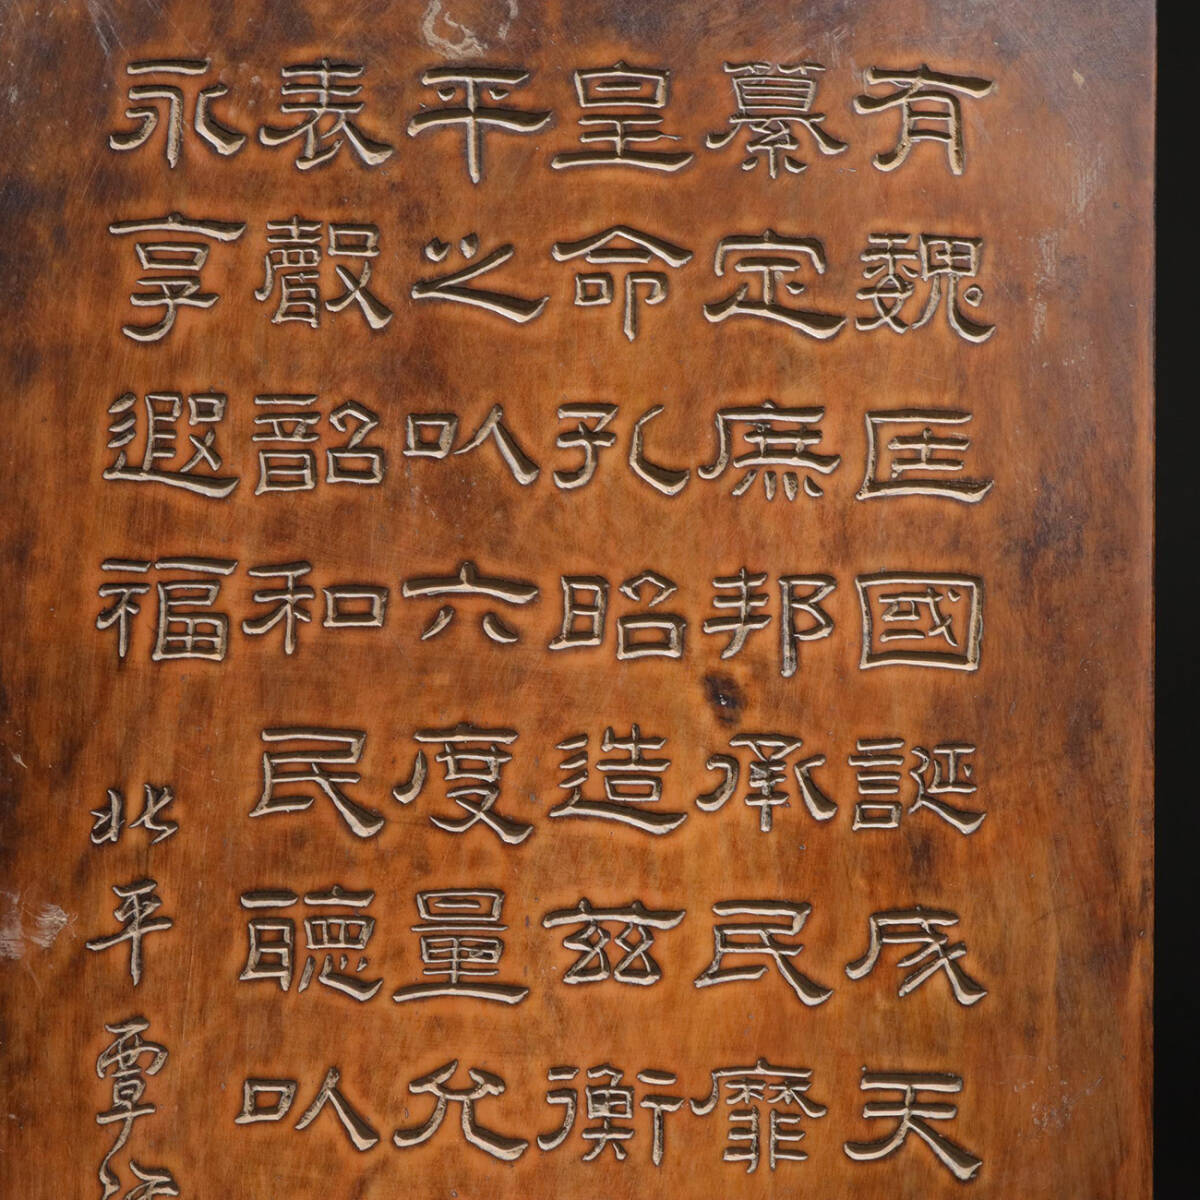 有魏匡國誕成天
纂定廡邦承民靡
皇命孔昭造茲衡
平之㕥六度量允
表聲韶和民聽㕥
永享遐福
北平覃